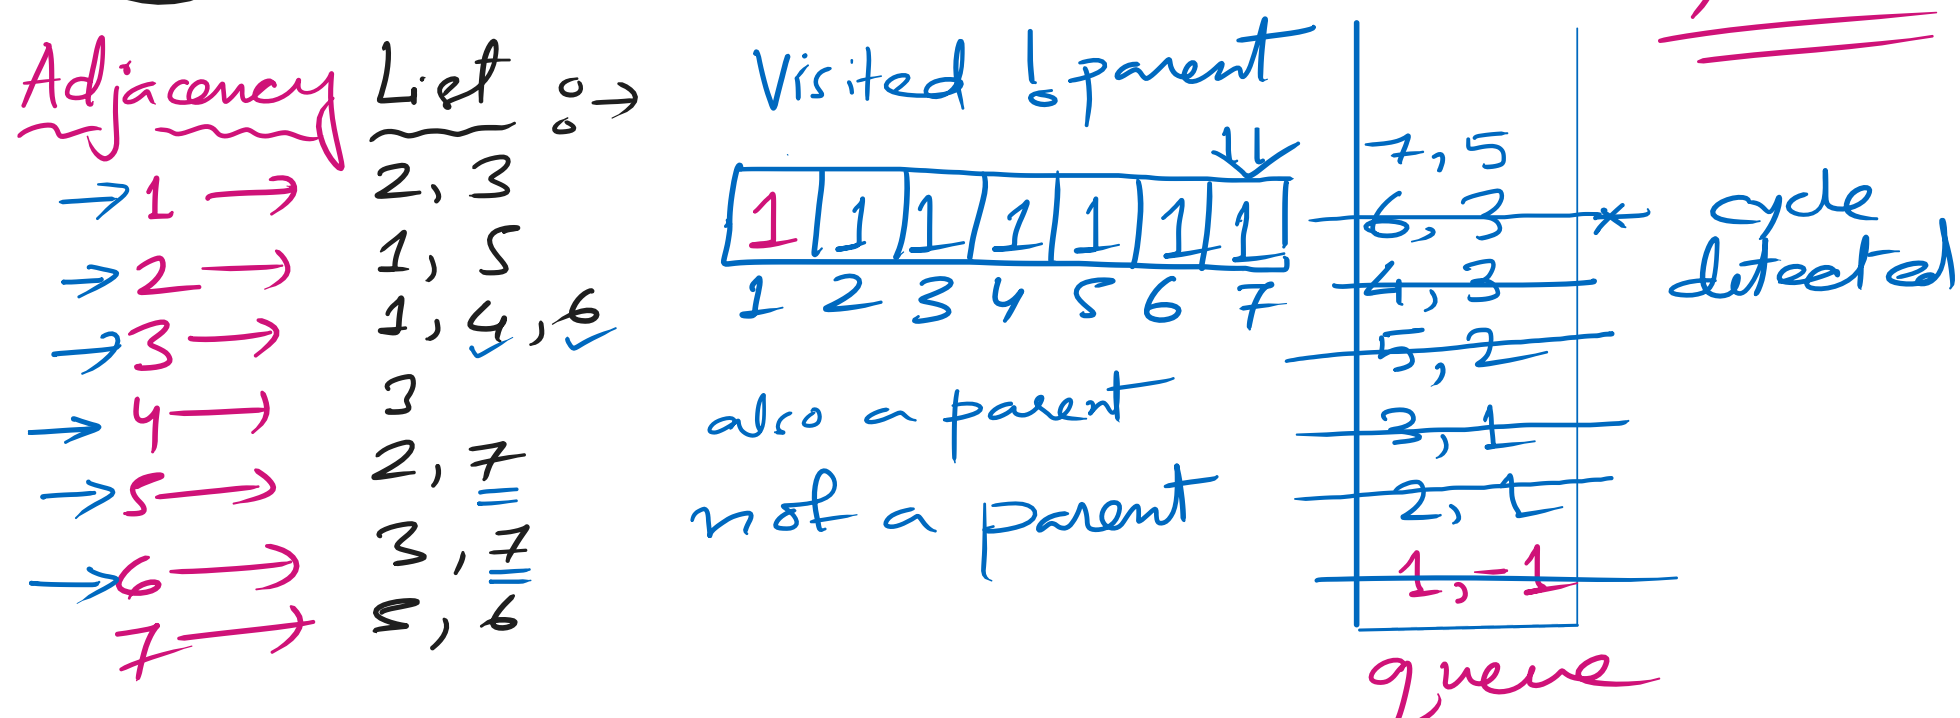 Adjacency List :→
1 → 2, 3
2 → 1, 5
3 → 1, 4, 6
4 → 3
5 → 2, 7
6 → 3, 7
7 → 5, 6
Visited ! parent
1 1 1 1 1 1 1
1 2 3 4 5 6 7
also a parent
not a parent
7, 5
6, 3
4, 3
5, 2
3, 1
2, 1
1, -1
queue
cycle
detected